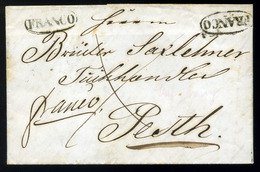 FRANCO
FRANCO
Herrn
Brüder Saxlehner
Tuchhändler
franco
Pesth.